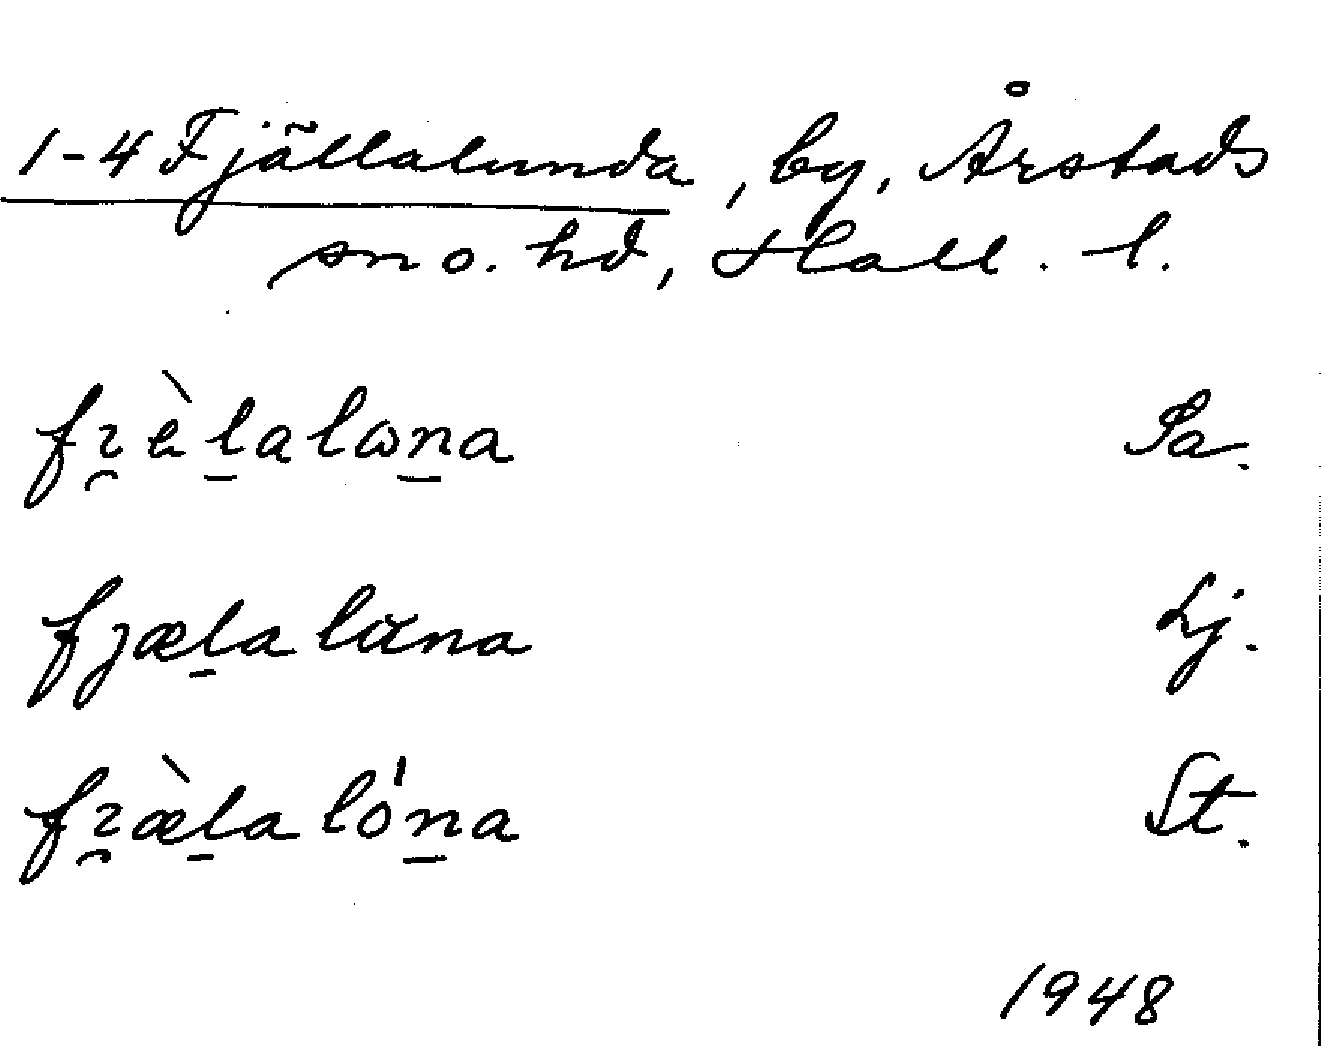 1-4 Fjällalunda, by, Årstads
sn o. hd, Hall. l.
fɪ̯èl̠alωn̠a Sa.
fjæl̠alana Lj.
fɪ̯æ̀l̠alón̠a St.
1948